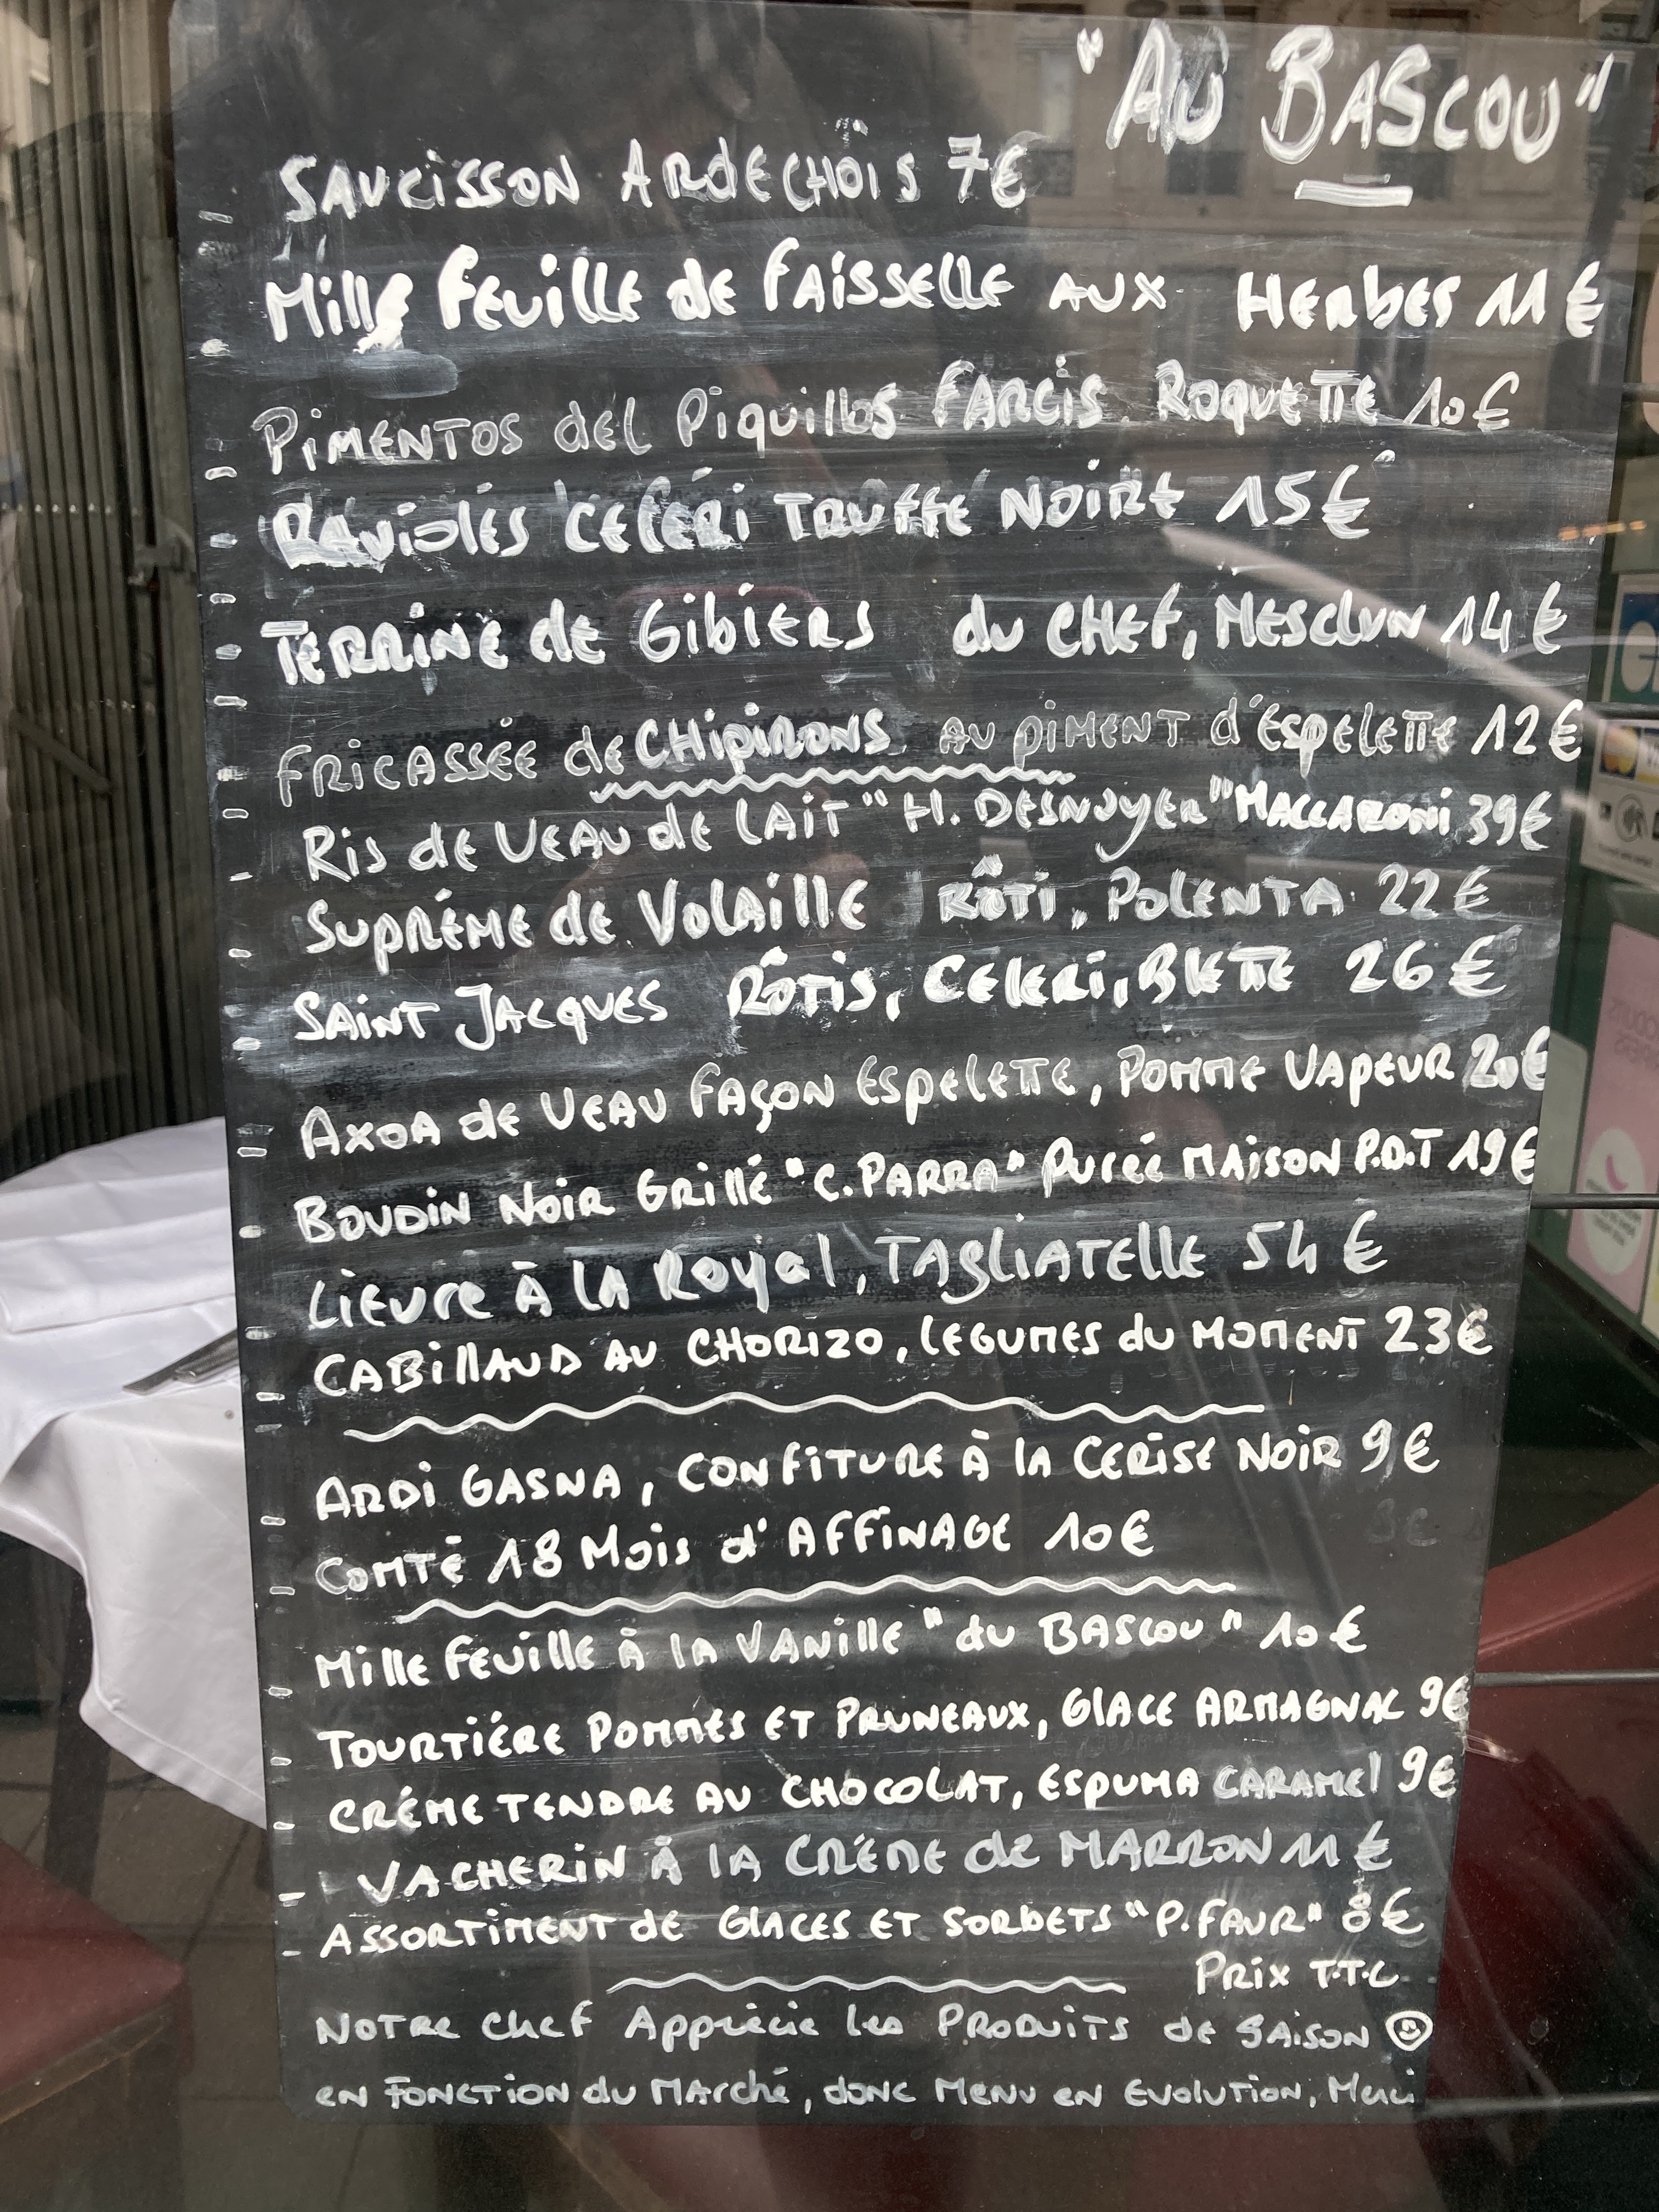 "AU BASCOU"
- SAUCISSON ARDECHOIS 7€
- Mille feuille de FAISSELLE AUX HERBES 11€
- PIMENTOS dEL Piquillos FARCIS. ROQUETTE 10€
- RAVIOLES CELERI TRUFFE NOIRE 15€
- TERRINE de Gibiers du CHEF, MESCLUN 14€
- FRICASSÉE de CHIPIRONS AU PIMENT d'ESPELETTE 12€
- Ris de VEAU de LAIT "H. DESNOYER" MACCARONI 39€
- SUPRÉME de VOLAILLE RÔTI, POLENTA 22€
- SAINT JACQUES RÔTIS, CELERI, BLETTE 26€
- AXOA de VEAU FAÇON ESPELETTE, POMME VAPEUR 20€
- BOUDIN NOIR GRILLÉ "C. PARRA" PURÉE MAISON P.D.T 19€
- LIEVRE À LA ROYAL, TAGLIATELLE 54€
- CABILLAUD AU CHORIZO, LEGUMES du MOMENT 23€
- ARDI GASNA, CONFITURE À LA CERISE NOIR 9€
- COMTÉ 18 MOIS d'AFFINAGE 10€
- MILLE FEUILLE À LA VANILLE "du BASCOU" 10€
- TOURTIÉRE POMMES ET PRUNEAUX, GLACE ARMAGNAC 9€
- CRÉME TENDRE AU CHOCOLAT, ESPUMA CARAMEL 9€
- VACHERIN À LA CRÉME de MARRON 11€
- ASSORTIMENT de GLACES ET SORBETS "P. FAUR" 8€
PRIX T.T.C
NOTRE CHEF Apprécie les PRODUITS de SAISON
EN FONCTION du MARché, donc MENU EN EVOLUTION, Merci